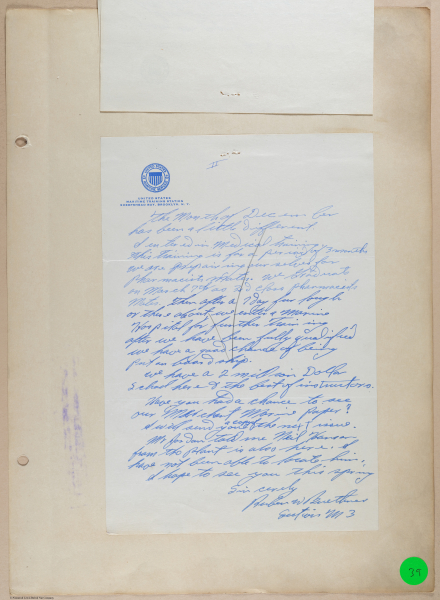 UNITED STATES
MARITIME TRAINING STATION
SHEEPSHEAD BAY, BROOKLYN, N. Y.
The Month of Dec
has been a little different
I entered in Medical training
this training is for a period of months
we are preparing ourselves for
Pharmacists Mate. we
on March as 3rd class pharmacists
Mates then after a 7 day furlough
or there about we enter a Marine
Hospital for further training
after we have been fully qualified
we have a good chance of being
put on board ship.
we have a 2 million Dollar
School here & the best of instructors.
Have you had a chance to see
our Merchant Marine paper?
I will send you some of the next issue.
Mr. Jordan told me Neil
from the plant is also here. I
have not been able to locate him.
I hope to see you this spring
Sincerely
39